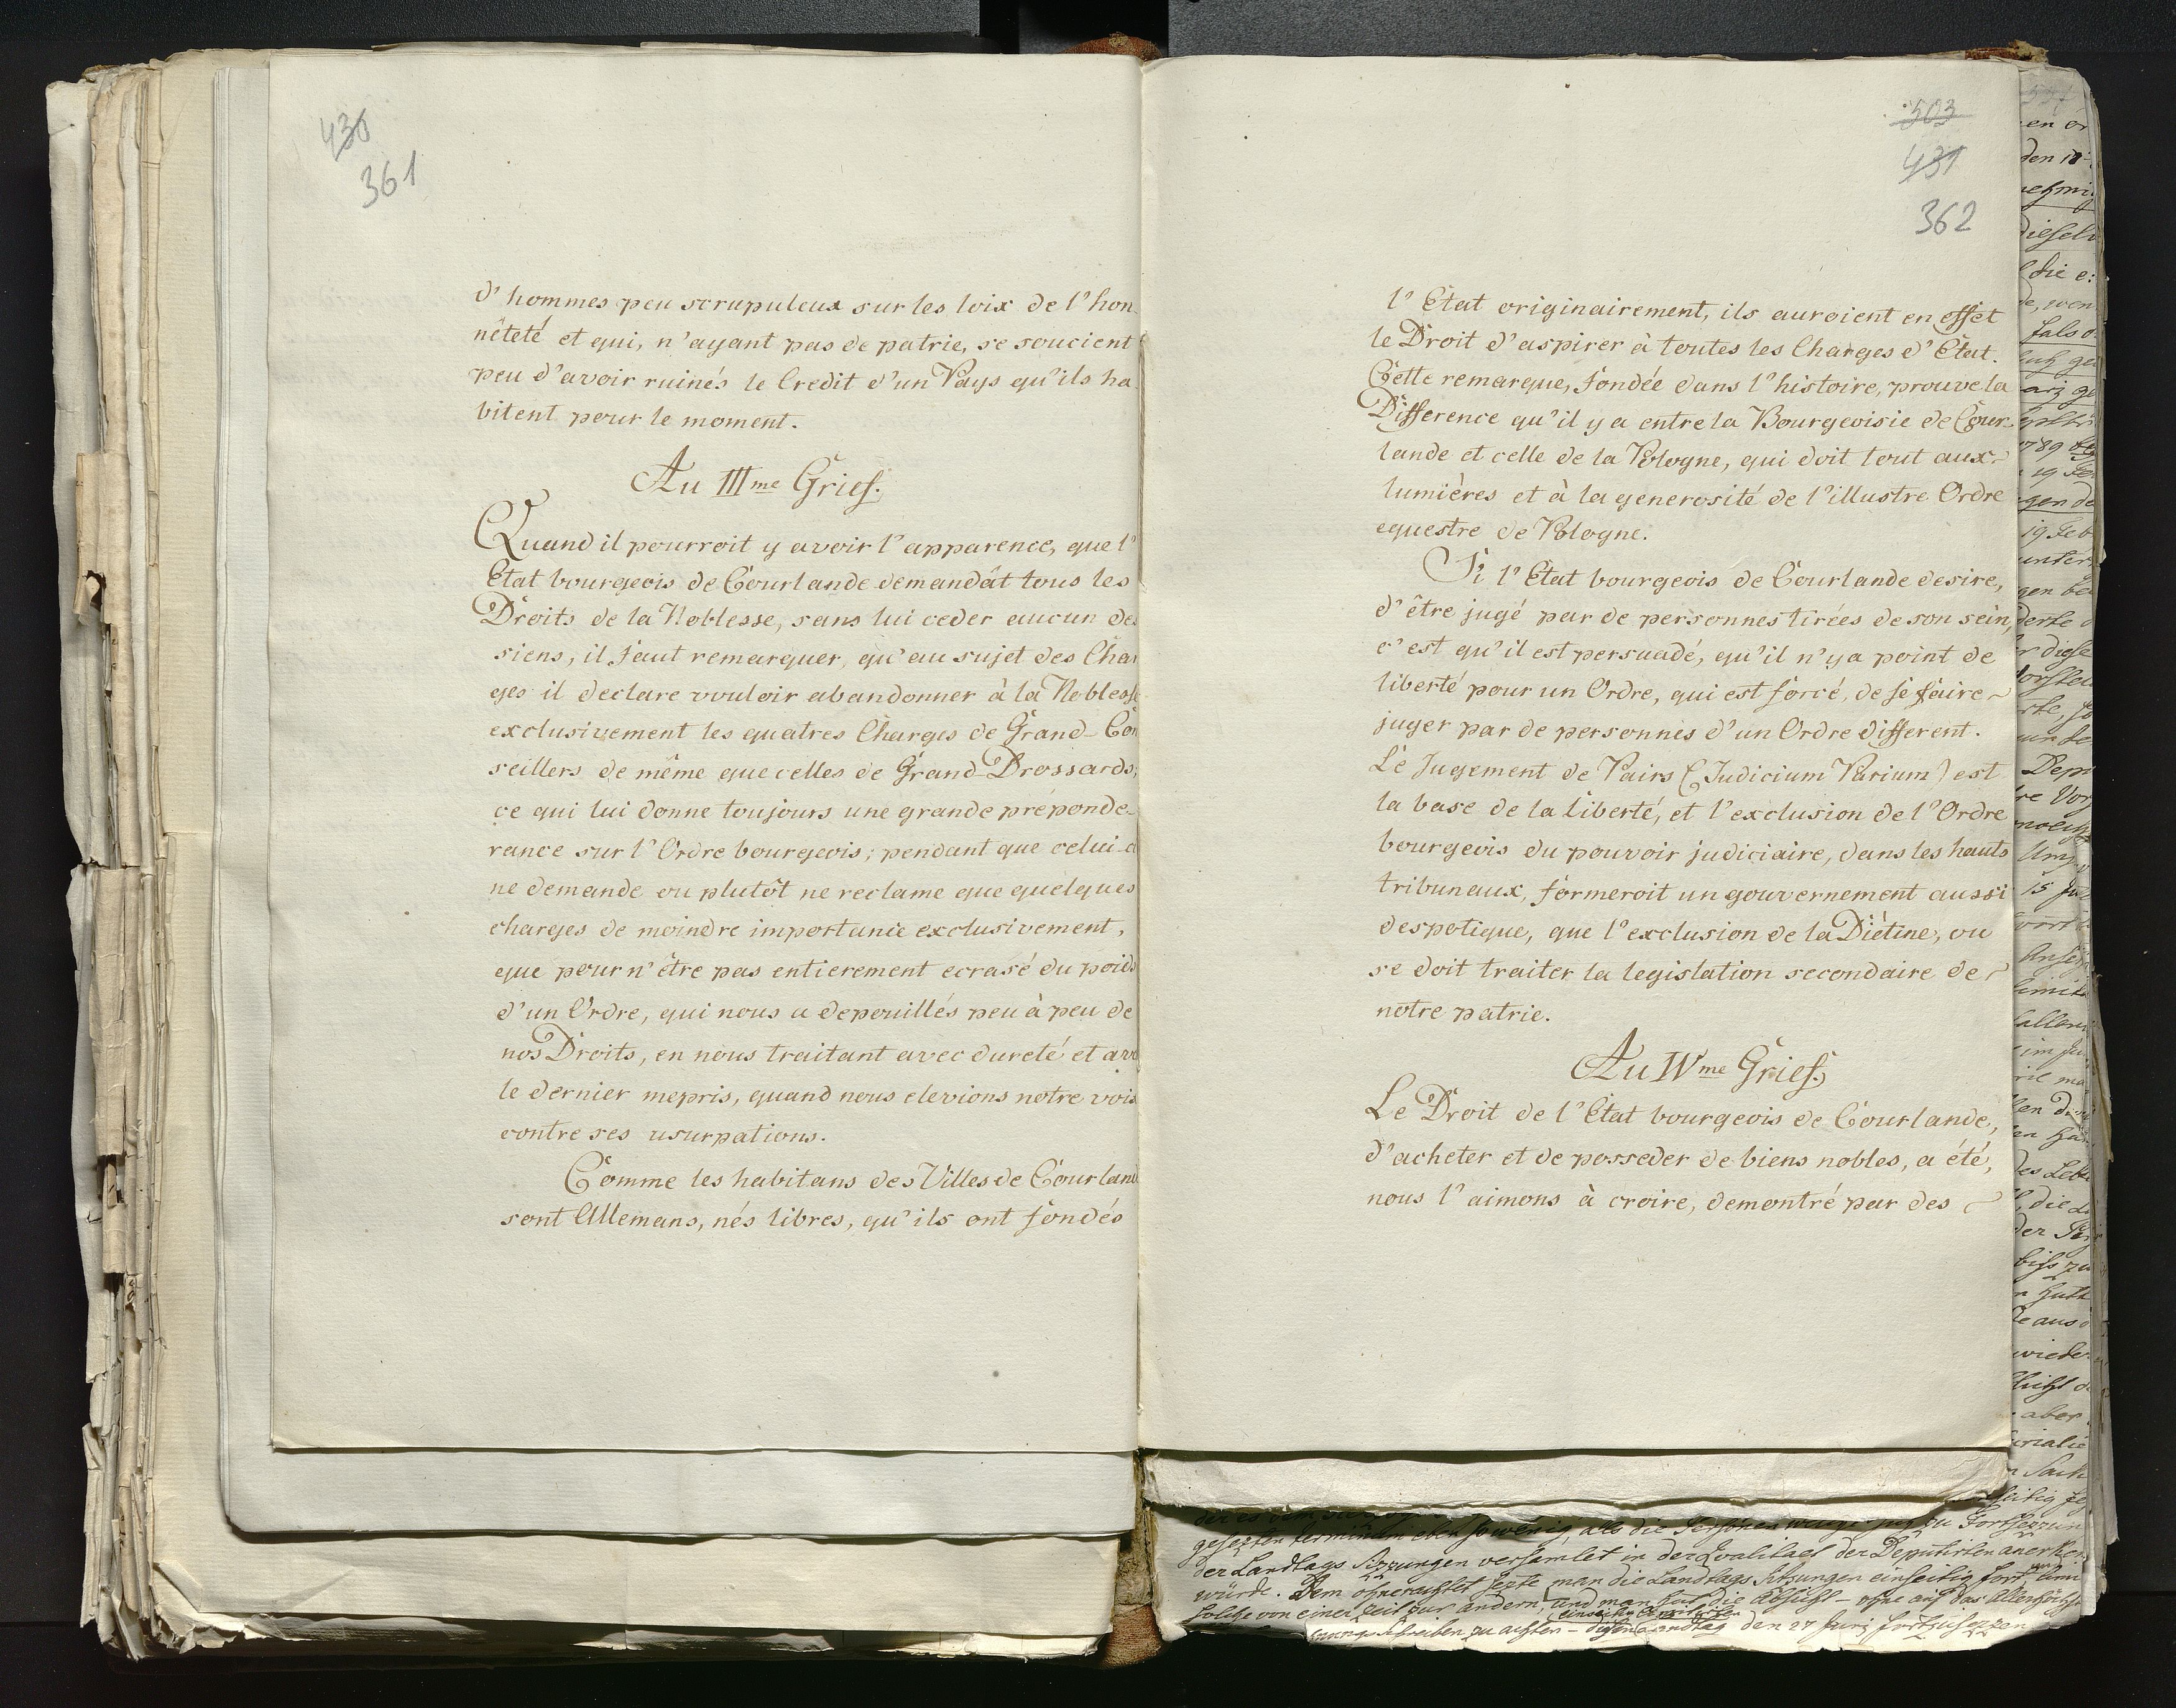 430
361
d'hommes peu scrupuleux sur les loix de l'hon
nêteté et qui, n'ayant pas de patrie, se soucient
peu d'avoir ruinés le Credit d'un Pays qu'ils ha
bitent pour le moment.
Au IIIme Grief.
Quand il pourroit y avoir l'apparence, que l'
Etat bourgeois de Courlande demandât tous les
Droits de la Noblesse, sans lui ceder aucun des
siens, il faut remarquer, qu'au sujet des Char
ges il declare vouloir abandonner à la Noblesse
exclusivement les quatres Charges de Grand-Con
seillers de même que celles de Grand-Drossards;
ce qui lui donne toujours une grande préponde-
rance sur l'Ordre bourgeois; pendant que celui-ci
ne demande ou plutôt ne reclame que quelques
charges de moindre importance exclusivement,
que pour n'être pas entierement ecrasé du poids
d'un Ordre, qui nous a depouillés peu à peu de
nos Droits, en nous traitant avec dureté et ave
le dernier mepris, quand nous elevions notre voix
contre ses usurpations.
Comme les habitans des Villes de Courland
sont Allemans, nés libres, qu'ils ont fondés
503
431
362
l'Etat originairement, ils auroient en effet
le Droit d'aspirer à toutes les Charges d'Etat.
Cette remarque, fondée dans l'histoire, prouve la
Difference qu'il y a entre la Bourgeoisie de Cour-
lande et celle de la Pologne, qui doit tout aux
lumières et à la generosité de l'illustre Ordre
equestre de Pologne.
Si l'Etat bourgeois de Courlande desire,
d'être jugé par de personnes tirées de son sein,
c'est qu'il est persuadé, qu'il n'y a point de
liberté pour un Ordre, qui est forcé, de se faire
juger par de personnes d'un Ordre different.
Le Jugement de Pairs (Judicium Parium) est
la base de la liberté, et l'exclusion de l'Ordre
bourgeois du pouvoir judiciaire, dans les hauts
tribunaux, formeroit un gouvernement aussi
despotique, que l'exclusion de la Diétine, ou
se doit traiter la legislation secondaire de
notre patrie.
Au IVme Grief.
Le Droit de l'Etat bourgeois de Courlande,
d'acheter et de posseder de biens nobles, a été,
nous l'aimons à croire, demontré par des
der es
gesezten terminum eben so wenig, als die Personen zu Fortsezzun
der Landtags Sizzungen versamlet in der Qualitaet der Deputirten anerken
würde. Dem ohnerachtet sezte man die Landtags Sitzungen einseitig fort
solche von einer Zeit zur andern, und man hat die Absicht - ohne auf das Allerhöchste
zu achten - diesen Landtag den 27 Juni fortzusezzen